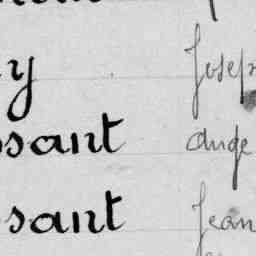 y Joseph
sant Ange
sant Jean